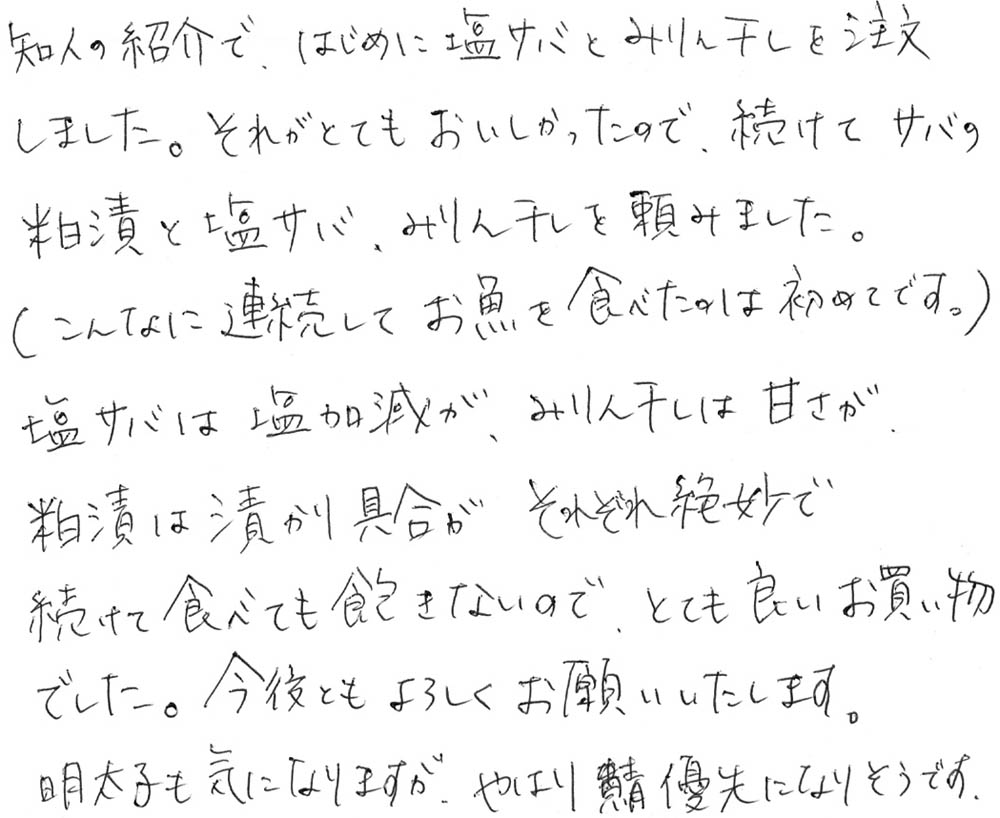 知人の紹介で、はじめに塩サバとみりん干しを注文
しました。それがとてもおいしかったので、続けてサバの
粕漬と塩サバ、みりん干しを頼みました。
(こんなに連続してお魚を食べたのは初めてです。)
塩サバは塩加減が、みりん干しは甘さが、
粕漬は漬かり具合がそれぞれ絶妙で
続けて食べても飽きないので、とても良いお買い物
でした。今後ともよろしくお願いいたします。
明太子も気になりますが、やはり鯖優先になりそうです.